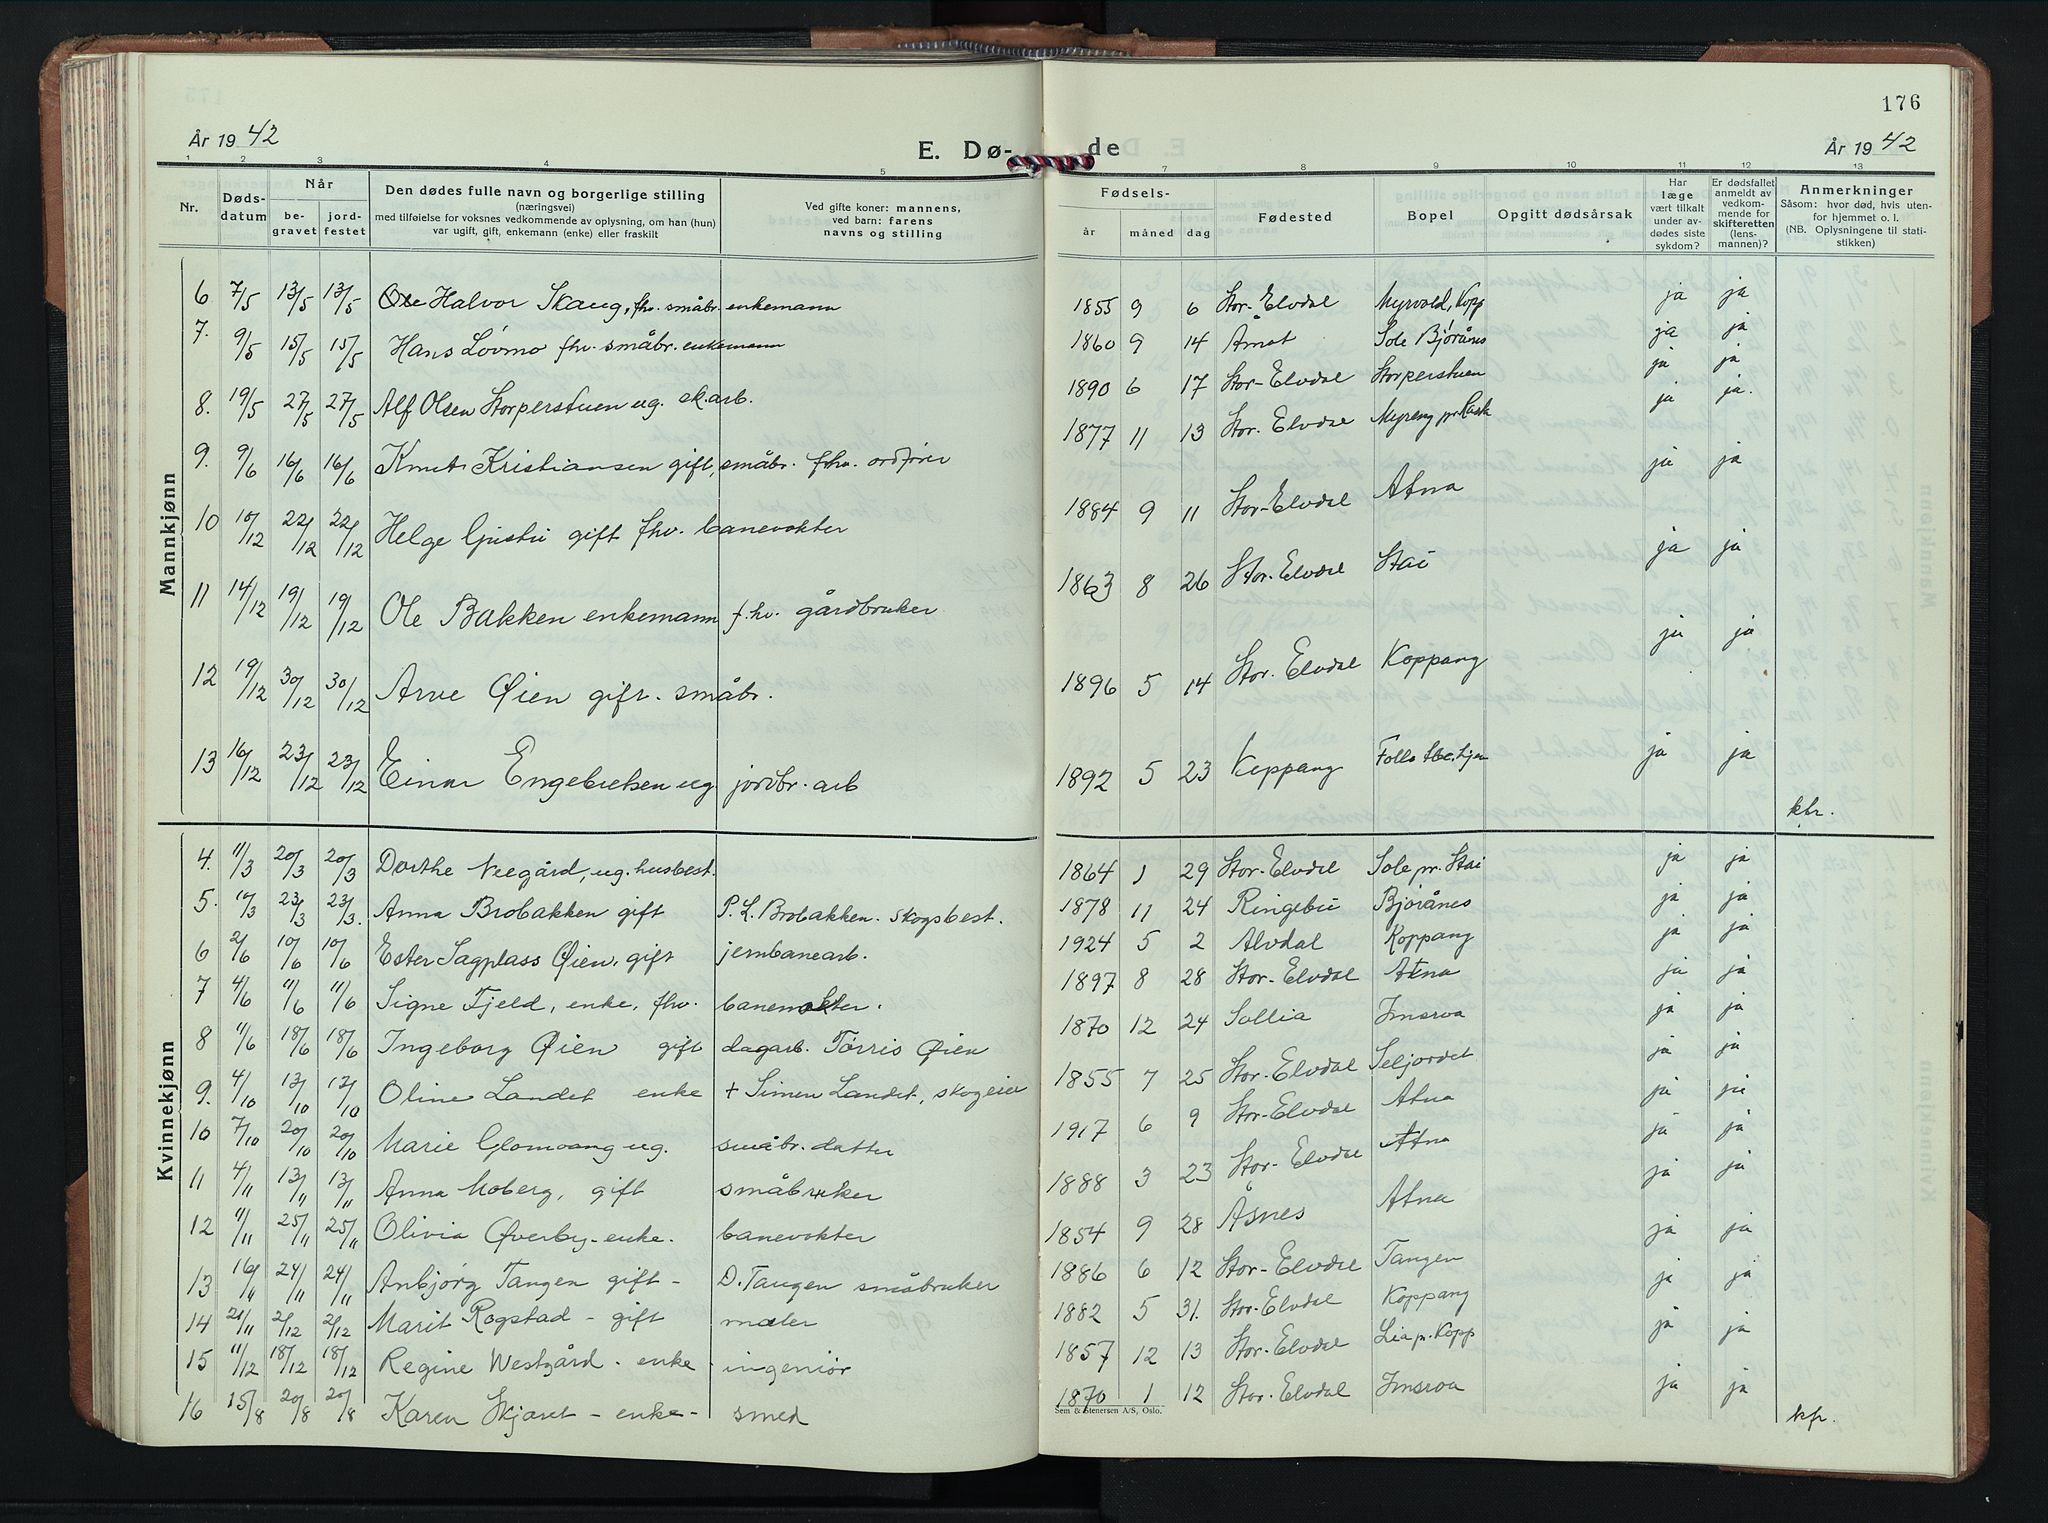 176
År 1942 E. Dø- de År 1942
1 2 3 4 5 7 8 9 10 11 12 13
Nr. Dødsdatum Når begravet jordfestet Den dødes fulle navn og borgerlige stilling (næringsvei) med tilføielse for voksnes vedkommende av oplysning, om han (hun) var ugift, gift, enkemann (enke) eller fraskilt Ved gifte koner: mannens, ved barn: farens navns og stilling Fødsels- år måned dag Fødested Bopel Opgitt dødsårsak Har læge vært tilkalt under avdødes siste sykdom? Er dødsfallet anmeldt av vedkommende for skifteretten (lensmannen)? Anmerkninger Såsom: hvor død, hvis utenfor hjemmet o. l. (NB. Oplysningene til statistikken)
Mannkjønn
6 7/5 13/5 13/5 Ole Halvor Skaug, fhv. småbr. enkemann 1855 9 6 Stor-Elvdal Myrvold, Kopp ja ja
7. 9/5 15/5 15/5 Hans Løvmo fhv. småbr. enkemann 1860 9 14 Åmot Sole Bjørånes ja ja
8. 19/5 27/5 27/5 Alf Olsen Storperstuen ug. sk.arb. 1890 6 17 Stor-Elvdal Storperstuen ja ja
9. 9/6 16/6 16/6 Knut Kristiansen gift, småbr. fhv. ordfører 1877 11 13 Stor-Elvdal Myreng pr. ja ja.
10 10/12 22/12 22/12 Helge Gjustu gift fhv. banevokter 1884 9 11 Stor-Elvdal Atna ja ja
11 14/12 19/12 19/12 Ole Bakken enkemann f.hv. gårdbruker 1863 8 26 Stor-Elvdal Stai ja ja
12 19/12 30/12 30/12 Arve Øien gift. småbr. 1896 5 14 Stor-Elvdal Koppang ja ja
13 16/12 23/12 23/12 Einar Engebretsen ug jordbr. arb 1892 5 23 Koppang Folls ja ja kfr.
Kvinnekjønn
4. 11/3 20/3 20/3 Dorthe Neegård, ug. husbest. 1864 1 29 Stor-Elvdal Sole pr. Stai ja ja
5. 10/3 23/3 23/3. Anna Brobakken gift P. L. Brobakken. skogsbest. 1878 11 24 Ringebu Bjørånes ja ja
6 2/6 10/6 10/6 Ester Sagplass Øien, gift jernbanearb. 1924 5 2 Alvdal Koppang ja ja
7 4/6 11/6 11/6 Signe Fjeld, enke, fhv. banevokter. 1897 8 28 Stor-Elvdal Atna ja ja
8 11/6 18/6 18/6 Ingeborg Øien gift dagarb. Tørris Øien 1870 12 24 Sollia Imsroa ja ja
9. 4/10 13/10 13/10 Oline Landet enke + Simen Landet, skogeier 1855 7 25 Stor-Elvdal Seljordet ja ja
10 7/10 20/10 20/10 Marie Glomvang ug. småbr. datter 1917 6 9 Stor-Elvdal Atna ja ja
11 4/11 13/11 13/11 Anna Moberg, gift småbruker 1888 3 23 Stor-Elvdal Atna ja ja
12 11/11 25/11 25/11 Olivia Øverby - enke. banevokter 1854 9 28 Åsnes Atna ja ja
13 16/11 24/11 24/11 Anbjørg Tangen gift - D. Tangen småbruker 1886 6 12 Stor-Elvdal Tangen ja ja
14 21/11 2/12 2/12 Marit Rogstad - gift maler 1882 5 31. Stor-Elvdal Koppang ja ja
15 11/12 18/12 18/12 Regine Westgård - enke - ingeniør 1857 12 13 Stor-Elvdal Lia p. Kopp ja ja
16 15/8 20/8 20/8 Karen Skjæret - enke - smed 1870 1 12 Stor-Elvdal Imsroa ja ja kfr.
Sem & Stenersen A/S, Oslo.